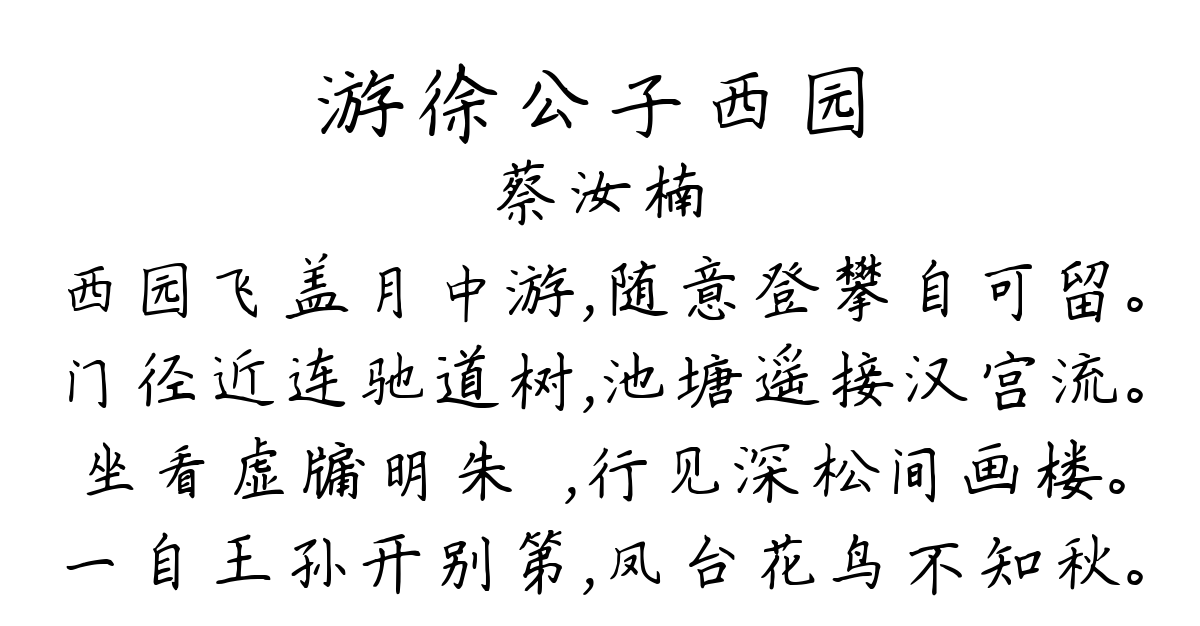 游徐公子西园
蔡汝楠
西园飞盖月中游,随意登攀自可留。
门径近连驰道树,池塘遥接汉宫流。
坐看虚牖明朱 ,行见深松间画楼。
一自王孙开别第,凤台花鸟不知秋。